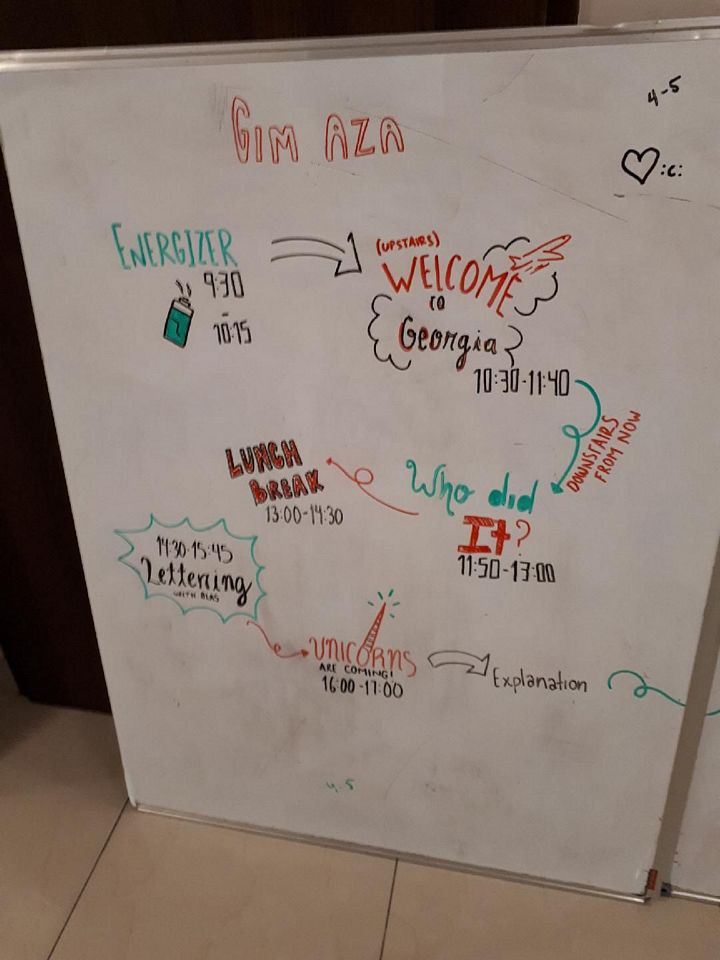 GIM AZA
4-5
:c:
ENERGIZER
9:30
-
10:15
(UPSTAIRS)
WELCOME
TO
Georgia
10:30-11:40
DOWNSTAIRS
FROM NOW
Who did
It?
11:50-13:00
LUNCH
BREAK
13:00-14:30
14:30-15:45
Lettering
WITH BLAS
UNICORNS
ARE COMING!
16:00-17:00
Explanation
4.5